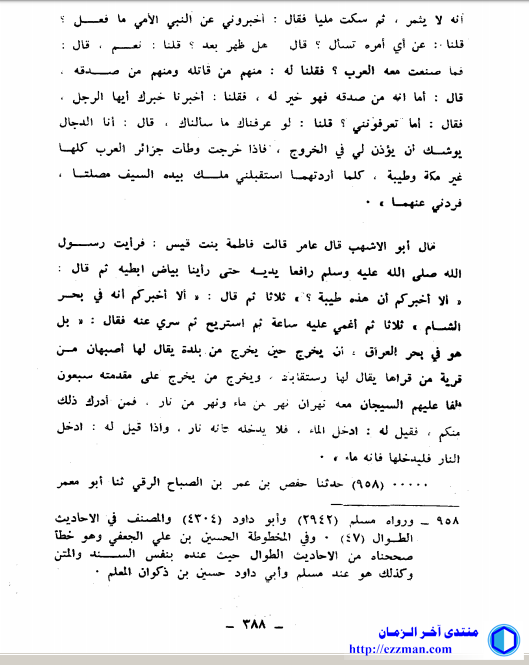 أنه لا يثمر ، ثم سكت مليا فقال : أخبروني عن النبي الأمي ما فعل ؟
قلنا : عن أي أمره تسأل ؟ قال هل ظهر بعد ؟ قلنا : نعم ، قال :
فما صنعت معه العرب ؟ فقلنا له : منهم من قاتله ومنهم من صدقه ،
قال : أما انه من صدقه فهو خير له ، فقلنا : أخبرنا خبرك أيها الرجل ،
فقال : أما تعرفونني ؟ قلنا : لو عرفناك ما سألناك ، قال : أنا الدجال
يوشك أن يؤذن لي في الخروج ، فاذا خرجت وطأت جزائر العرب كلها
غير مكة وطيبة ، كلما أردتهما استقبلني ملك بيده السيف مصلتا ،
فردني عنهما » ٠
قال أبو الاشهب قال عامر قالت فاطمة بنت قيس : فرأيت رسول
الله صلى الله عليه وسلم رافعا يديه حتى رأينا بياض ابطيه ثم قال :
« ألا أخبركم أن هذه طيبة ؟ » ثلاثا ثم قال : « ألا أخبركم أنه في بحر
الشام » ثلاثا ثم أغمي عليه ساعة ثم استريح ثم سري عنه فقال : « بل
هو في بحر العراق ، أن يخرج حين يخرج من بلدة يقال لها أصبهان من
قرية من قراها يقال لها رستقاباد ، ويخرج من يخرج على مقدمته سبعون
ألفا عليهم السيجان معه نهران نهر من ماء ونهر من نار ، فمن أدرك ذلك
منكم ، فقيل له : ادخل الماء ، فلا يدخله فانه نار ، واذا قيل له : ادخل
النار فليدخلها فانه ماء » ٠
٠٠٠٠٠ (٩٥٨) حدثنا حفص بن عمر بن الصباح الرقي ثنا أبو معمر
٩٥٨ ـ ورواه مسلم (٢٩٤٢) وأبو داود (٤٣٠٤) والمصنف في الاحاديث
الطوال (٤٧) ٠ وفي المخطوطة الحسين بن علي الجعفي وهو خطأ
صححناه من الاحاديث الطوال حيث عنده بنفس السند والمتن
وكذلك هو عند مسلم وأبي داود حسين بن ذكوان المعلم ٠
ـ ٣٨٨ ـ
منتدى آخر الزمان
http://ezzman.com